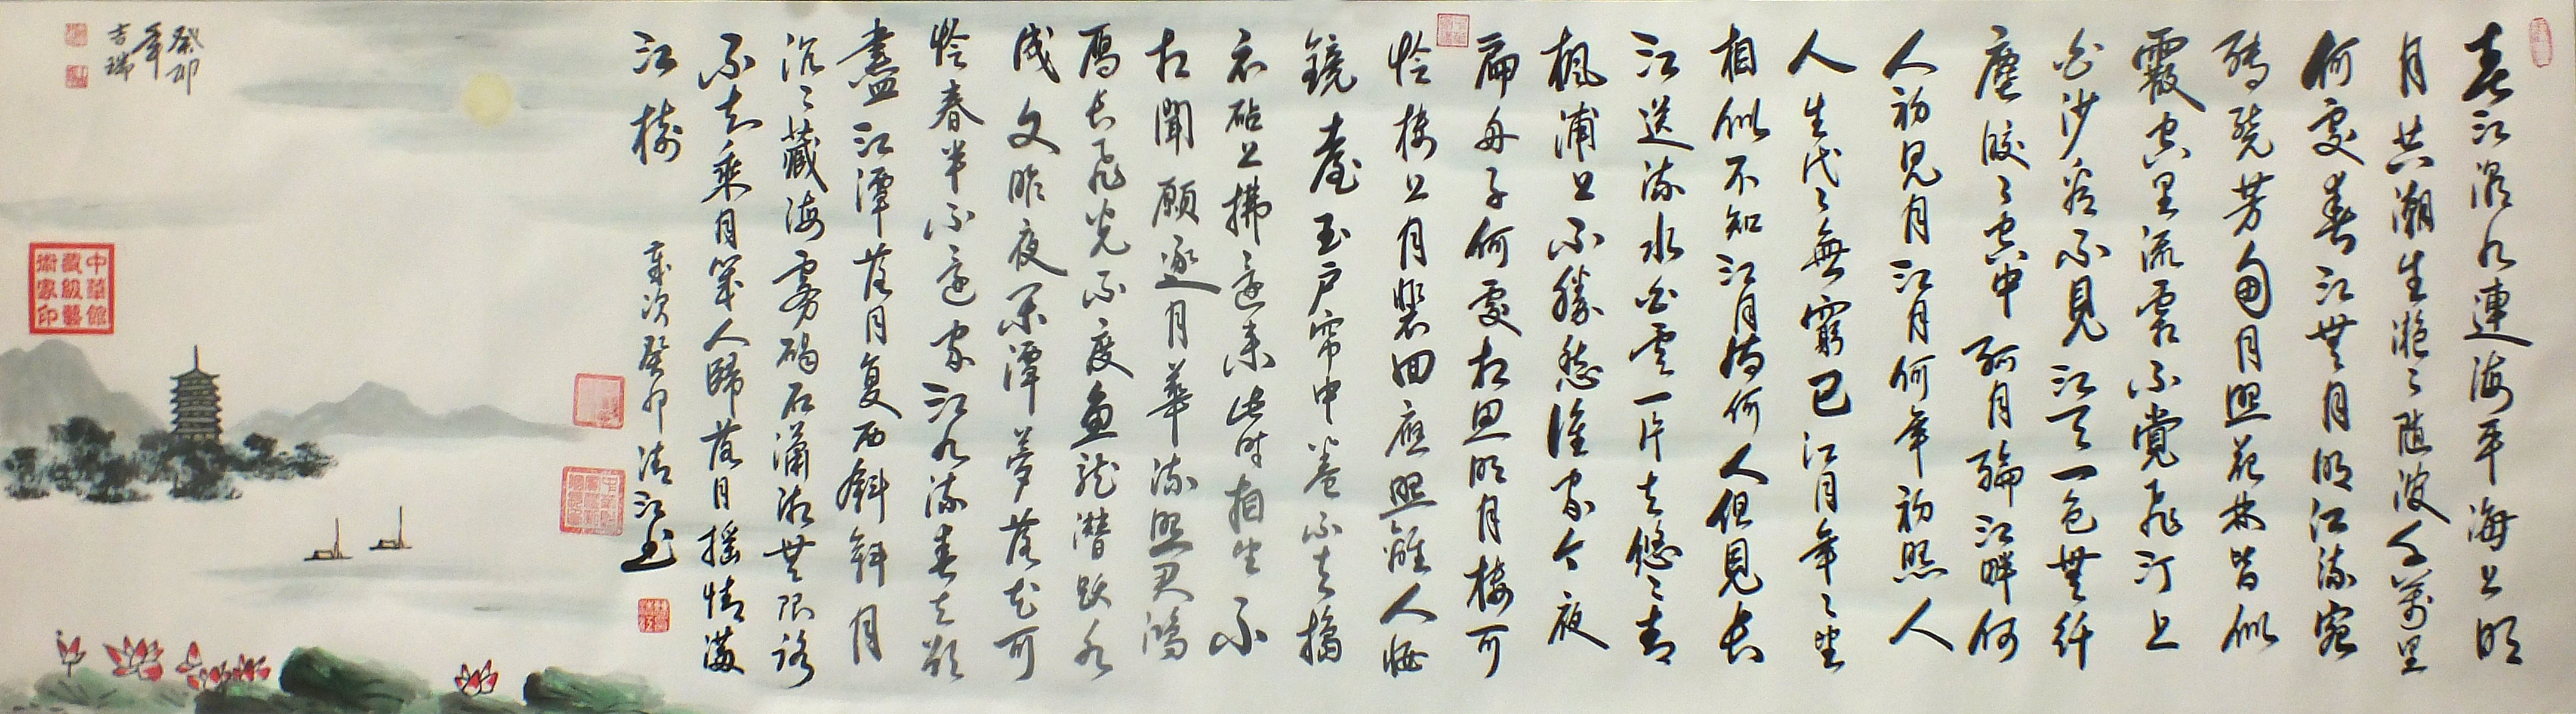 春江潮水連海平海上明
月共潮生灩〻随波千萬里
何處春江無月明江流宛
轉繞芳甸月照花林皆似
霰空里流霜不覺飛汀上
白沙看不見江天一色無纤
塵皎〻空中孤月輪江畔何
人初見月江月何年初照人
人生代〻無窮已江月年〻望
相似不知江月待何人但見長
江送流水白雲一片去悠〻青
楓浦上不勝愁誰家今夜
扁舟子何處相思明月樓可
憐樓上月裴回應照離人妝
鏡臺玉户帘中卷不去擣
衣砧上拂還来此時相望不
相聞願逐月華流照君鴻
雁長飛光不度魚龍潛躍水
成文昨夜閑潭夢落花可
憐春半不還家江水流春去欲
盡江潭落月复西斜斜月
沉〻藏海霧碣石瀟湘無限路
不知乘月幾人歸落月摇情滿
江樹
歲次癸卯清江书
癸卯
年
吉瑞
中華館
藏級藝
術家印